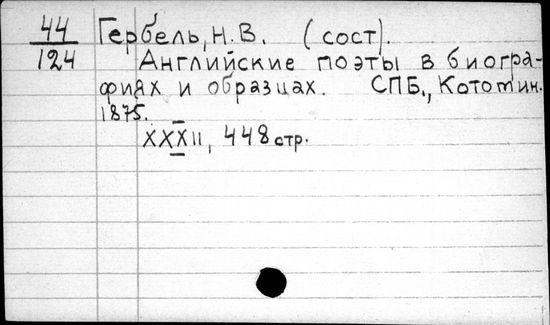 44 Гербель, Н. В. (сост).
124 Английские поэты в биогра-
фиях и образцах. СПБ., Котомин.
1875.
XXXII, 448 стр.